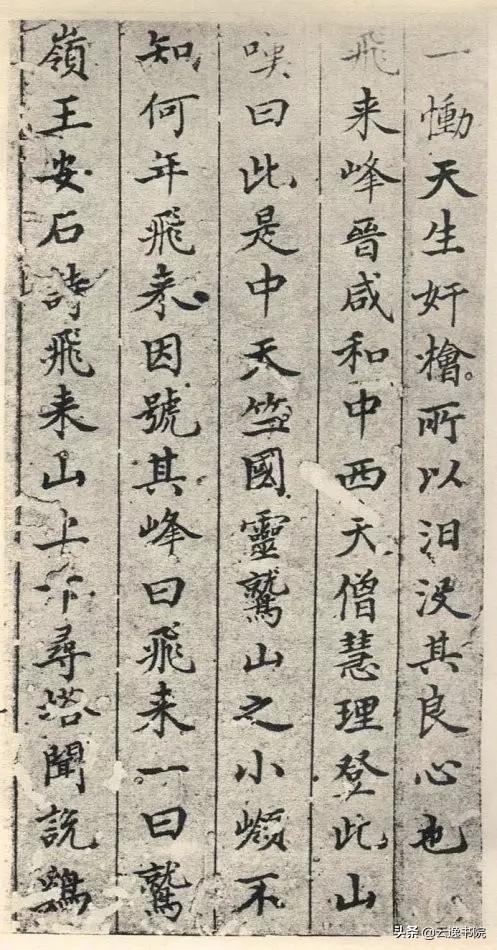 一慟天生奸檜所以汨没其良心也
飛来峰晉咸和中西天僧慧理登此山
嘆曰此是中天竺國靈鷲山之小嶺不
知何年飛来因號其峰曰飛来一曰鷲
嶺王安石詩飛来山上下尋塔聞説鷄
头条@云逸书院